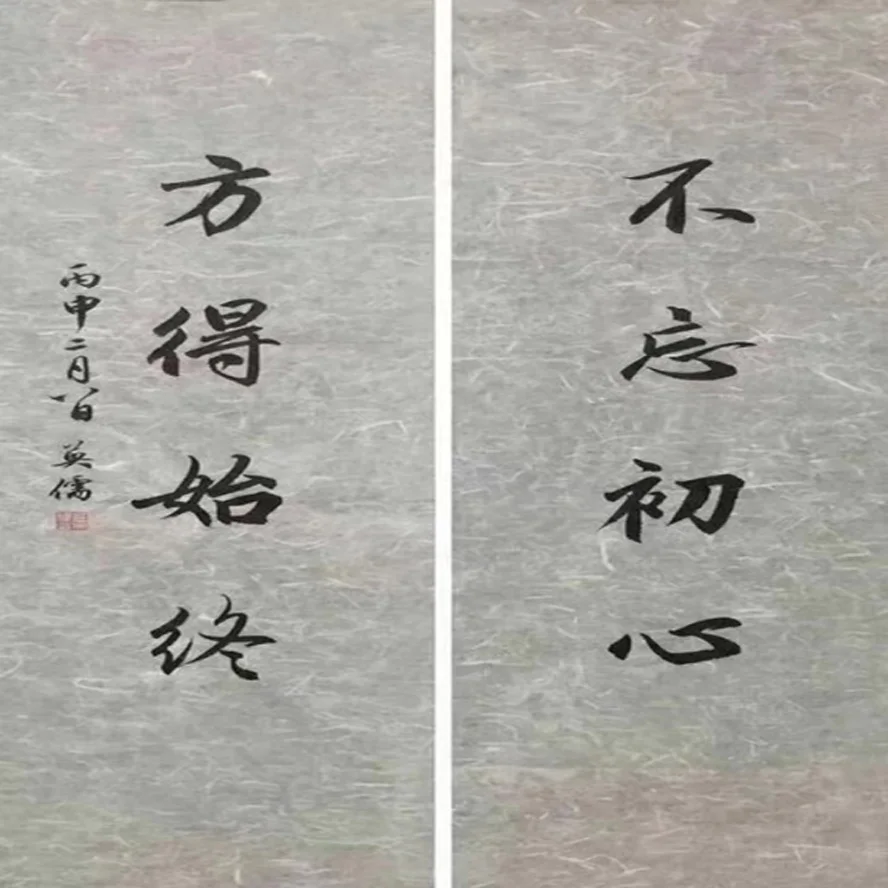 不忘初心
方得始终
丙申二月八日 英儒